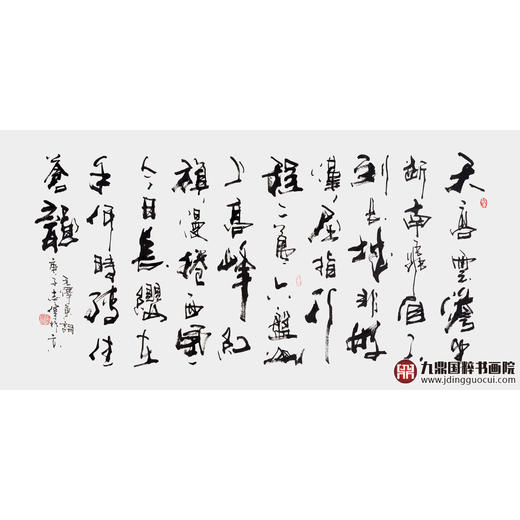 天高雲淡望
断南飛雁不
到长城非好
漢屈指行
程二萬六盤山
上高峰红
旗漫捲西風
今日長纓在
手何時縛住
蒼龍
毛澤東詞
庚子
九鼎国粹书画院
www.jdingguocui.com